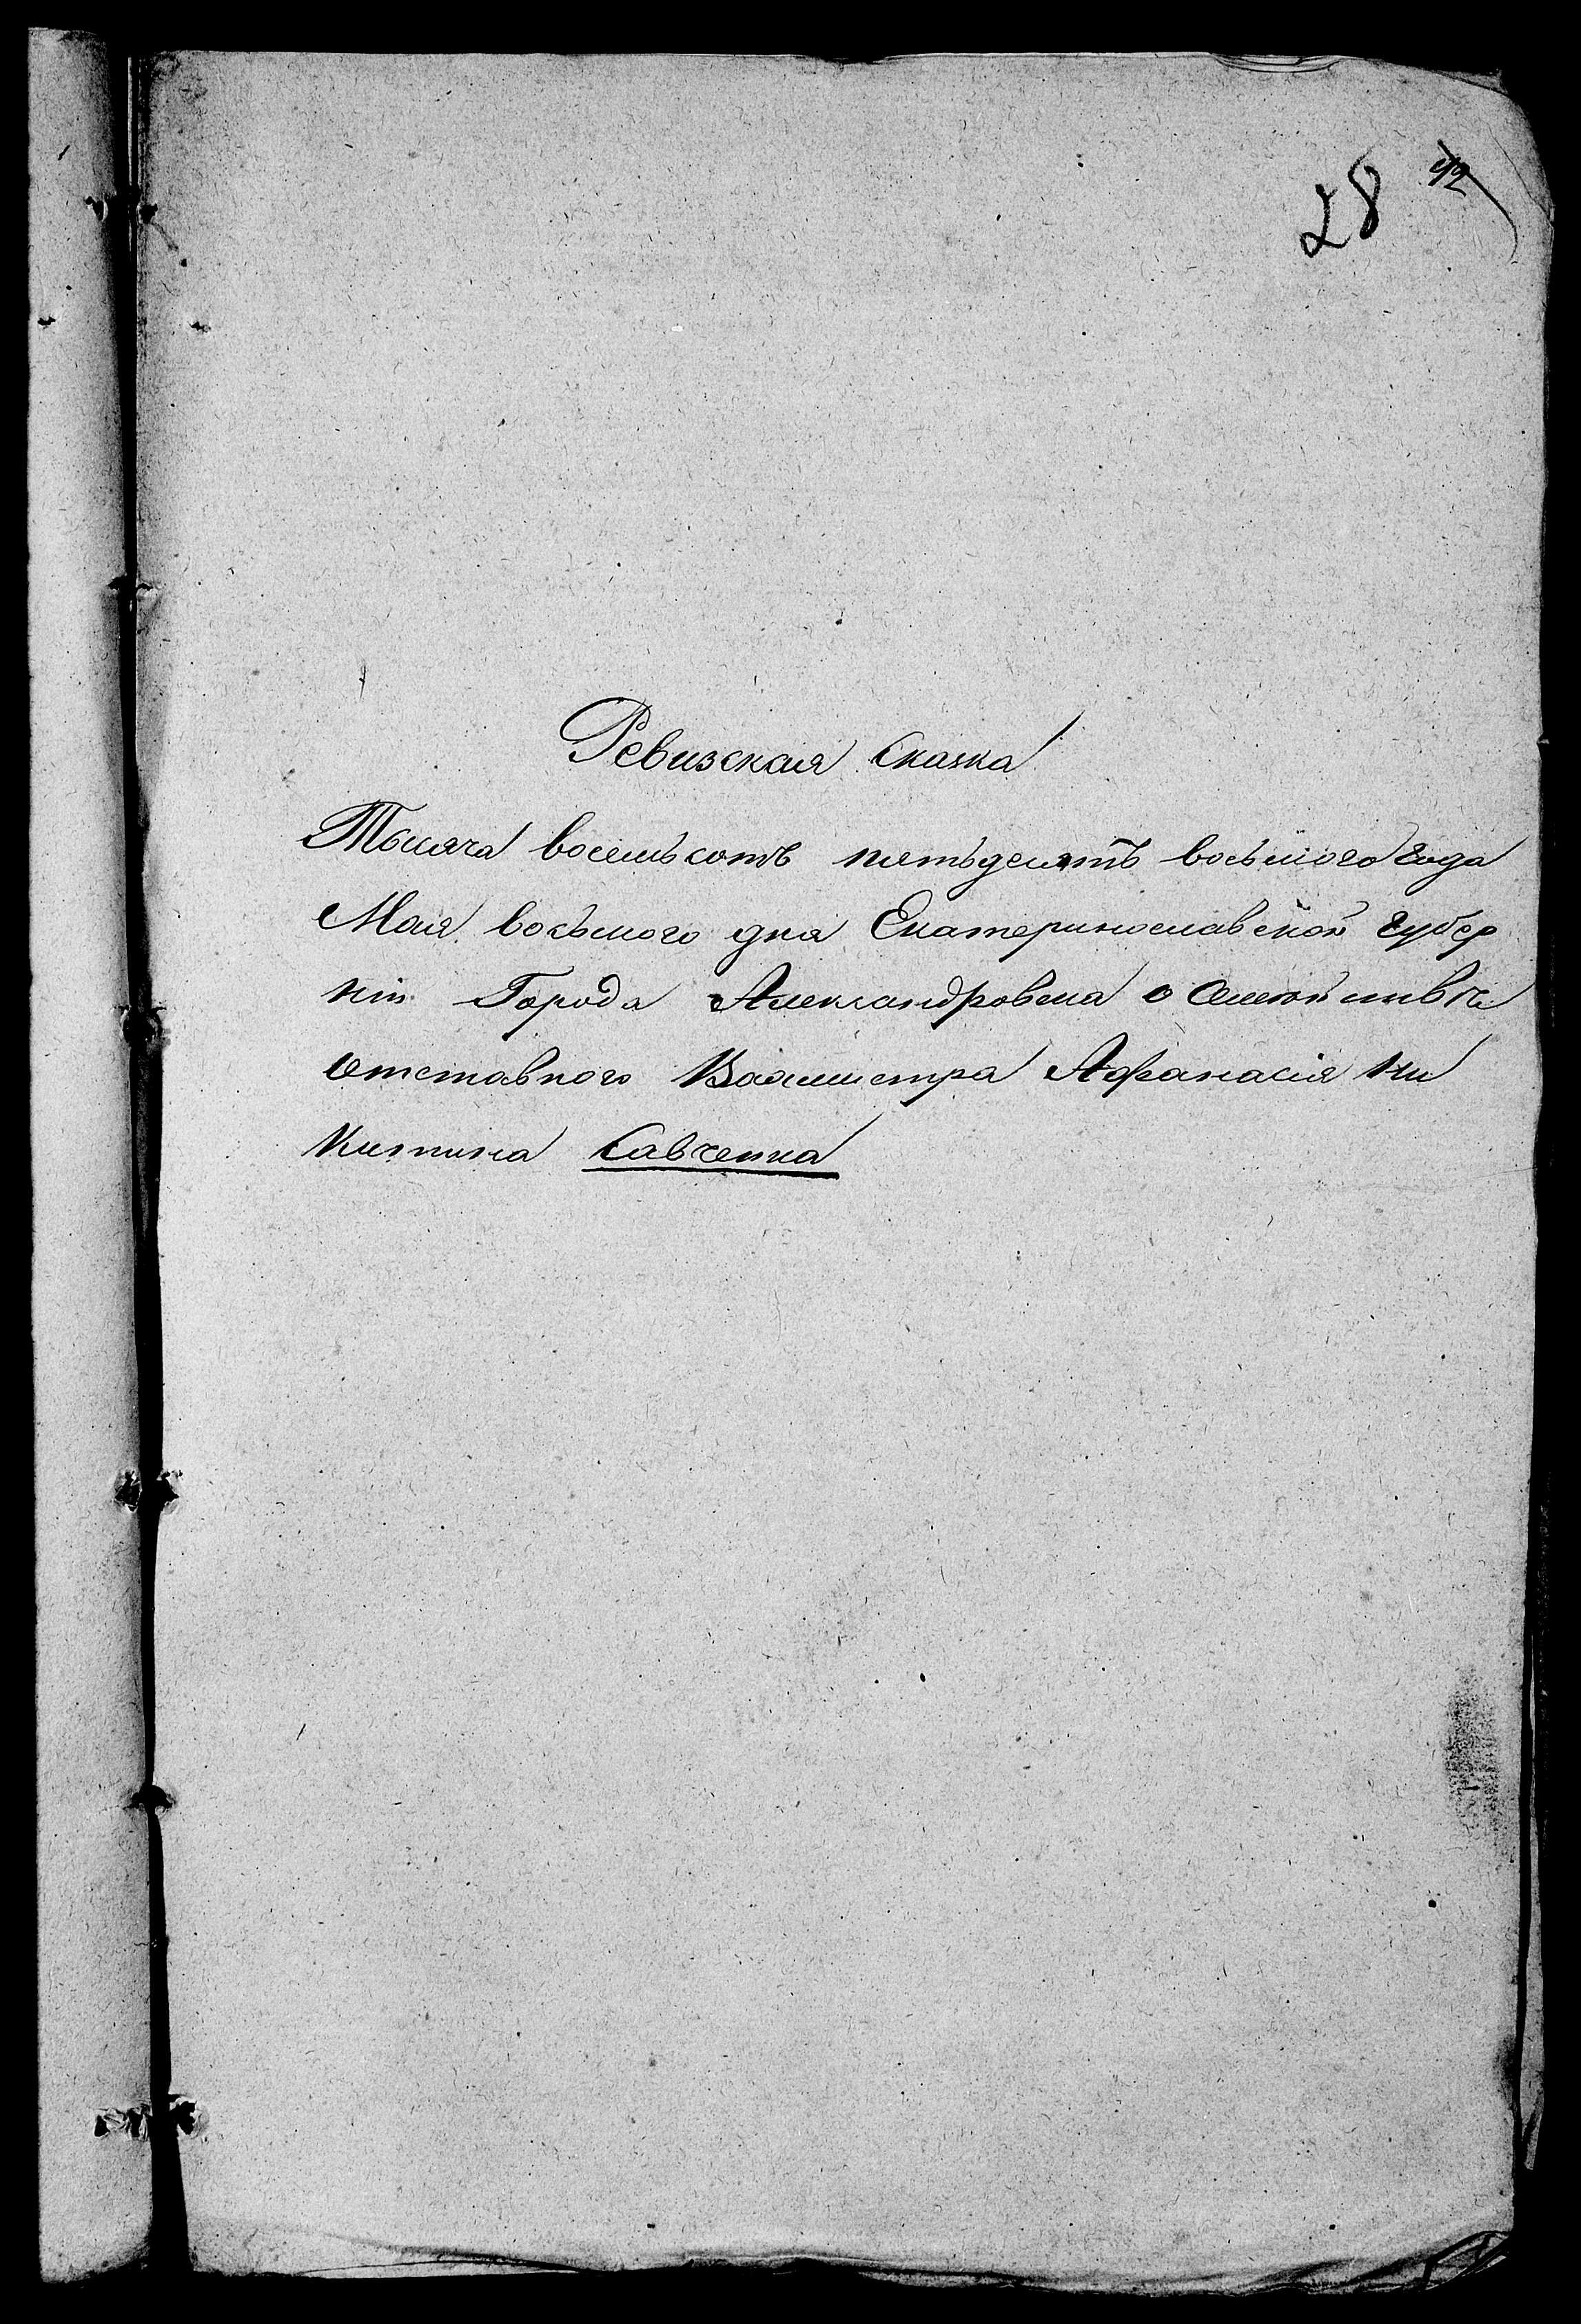 28 42
Ревизская Сказка
Тысяча восемьсотъ пятьдесятъ восьмого года
Мая восьмого дня Екатеринославской губер
ніи Города Александровска о Семействѣ
отставного Вахмистра Афанасія Ни
Китина Савченка